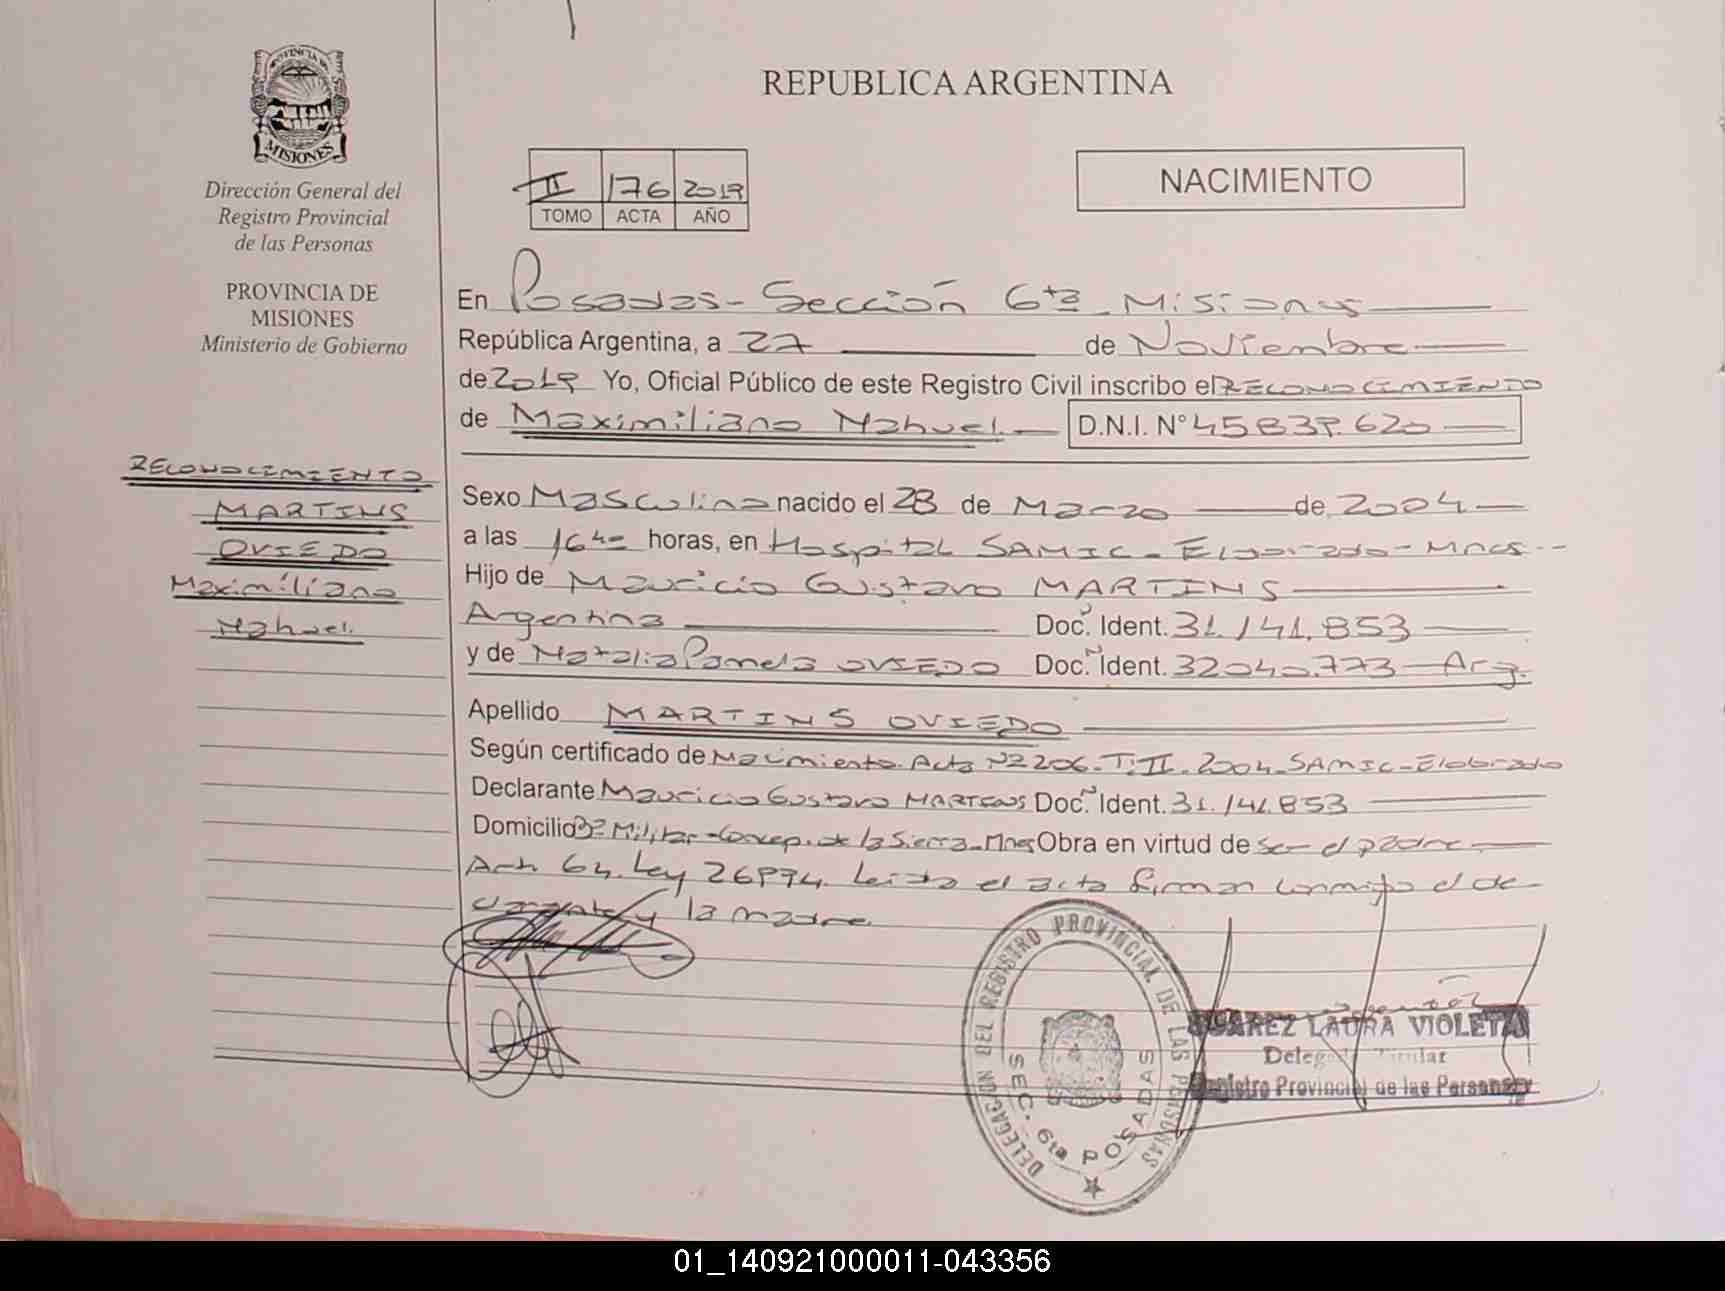 PROVINCIA DE
MISIONES
Dirección General del
Registro Provincial
de las Personas
PROVINCIA DE
MISIONES
Ministerio de Gobierno
RECONOCIMIENTO
MARTINS
OVIEDO
Maximiliano
Nahuel.
REPUBLICA ARGENTINA
II 176 2019
TOMO ACTA AÑO
NACIMIENTO
En Posadas - Sección 6ta - Misiones
República Argentina, a 27 de Noviembre
de 2019 Yo, Oficial Público de este Registro Civil inscribo el RECONOCIMIENTO
de Maximiliano Nahuel. D.N.I. N° 45.839.620
Sexo Masculino nacido el 28 de Marzo de 2004
a las 16 horas, en Hospital SAMIC - Eldorado - Mnes.
Hijo de Mauricio Gustavo MARTINS
Argentina Doc. Ident. 31.141.853
y de Natalia Pamela OVIEDO Doc. Ident. 32.040.773 - Arg.
Apellido MARTINS OVIEDO
Según certificado de Nacimiento Acta N° 206 - T: II - 2004 - SAMIC - Eldorado
Declarante Mauricio Gustavo MARTINS Doc. Ident. 31.141.853
Domicilio B° Militar - Concep. de la Sierra - Mnes Obra en virtud de ser el padre
Art. 64. Ley 26994. Leida el acta firman conmigo el de-
clarante y la madre
DELEGACION DEL REGISTRO PROVINCIAL DE LAS PERSONAS
SEC. 6ta POSADAS
SUAREZ LAURA VIOLETA
Delegada Titular
Registro Provincial de las Personas
01_140921000011-043356